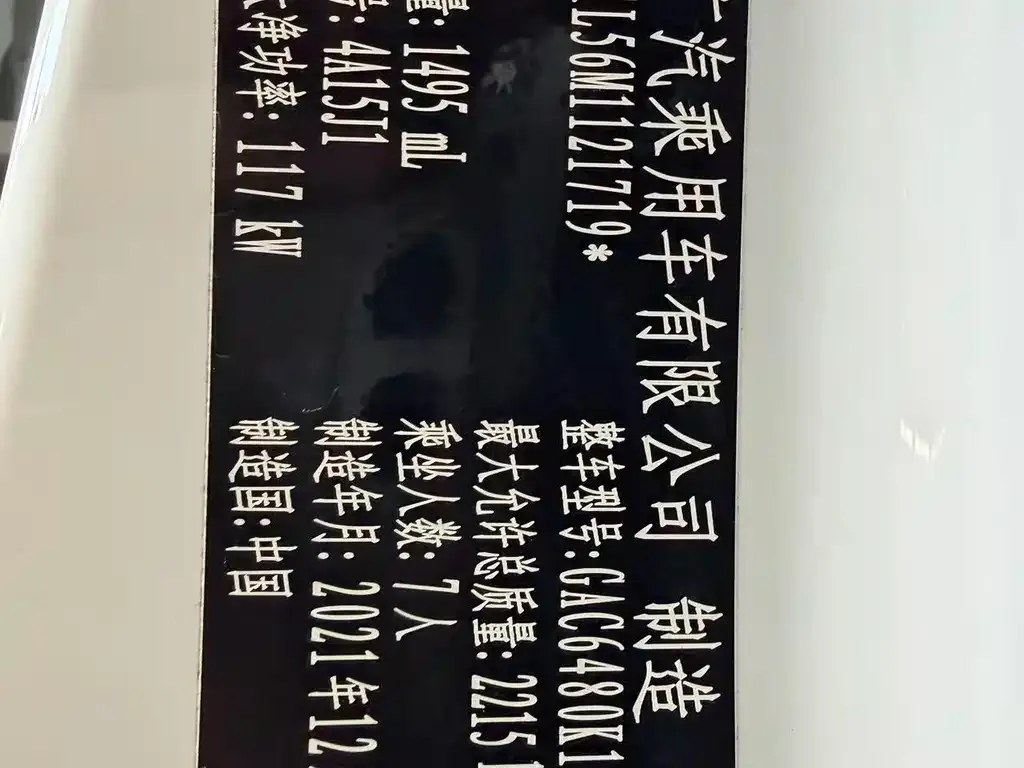 汽乘用车有限公司 制造
L56M1121719*
整车型号:GAC6480K1
最大允许总质量:2215
量:1495 mL
乘坐人数:7人
号:4A15J1
制造年月:2021年12
净功率:117 kW
制造国:中国